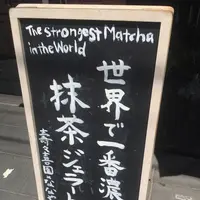 The strongest Matcha
in the World
世界で一番濃
抹茶ジェラート